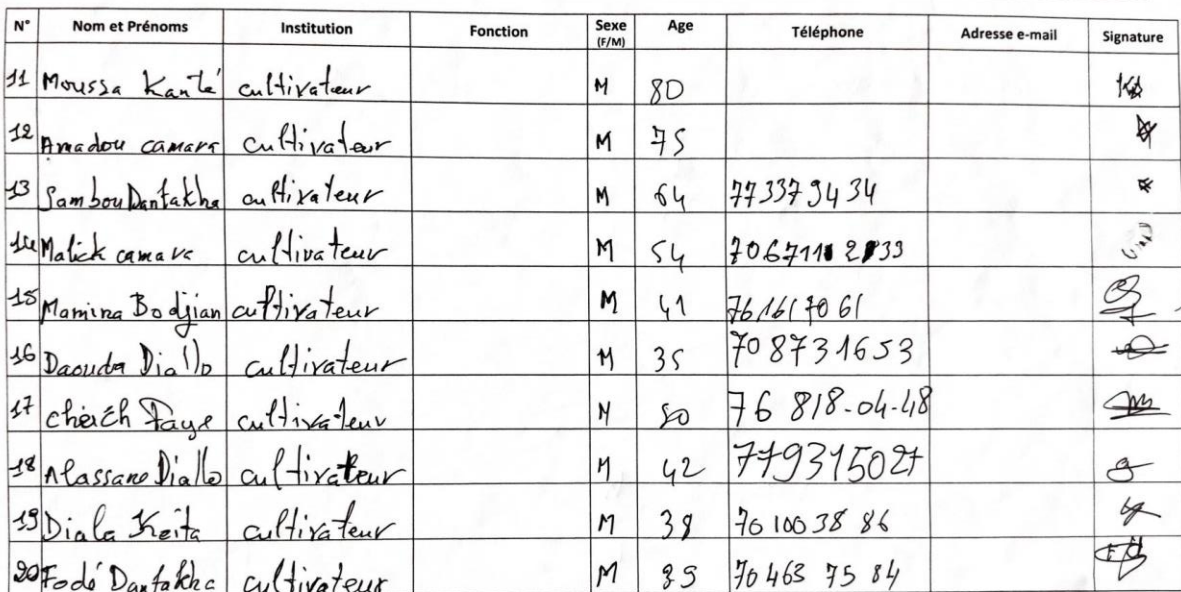 N° Nom et Prénoms Institution Fonction Sexe (F/M) Age Téléphone Adresse e-mail Signature
11 Moussa Kanté cultivateur M 80
12 Amadou camara cultivateur M 75
13 Sambou Dantakha cultivateur M 64 773379434
14 Malick camara cultivateur M 54
15 Mamina Bodjian cultivateur M 41 76 161 70 61
16 Daouda Diallo cultivateur M 35 708731653
17 cheich Faye cultivateur M 76 818-04-48
18 Alassane Diallo cultivateur M 42 779315027
19 Diala Keita cultivateur M 70 100 38 86
20 Fodé Dantakha cultivateur M 70 463 75 84